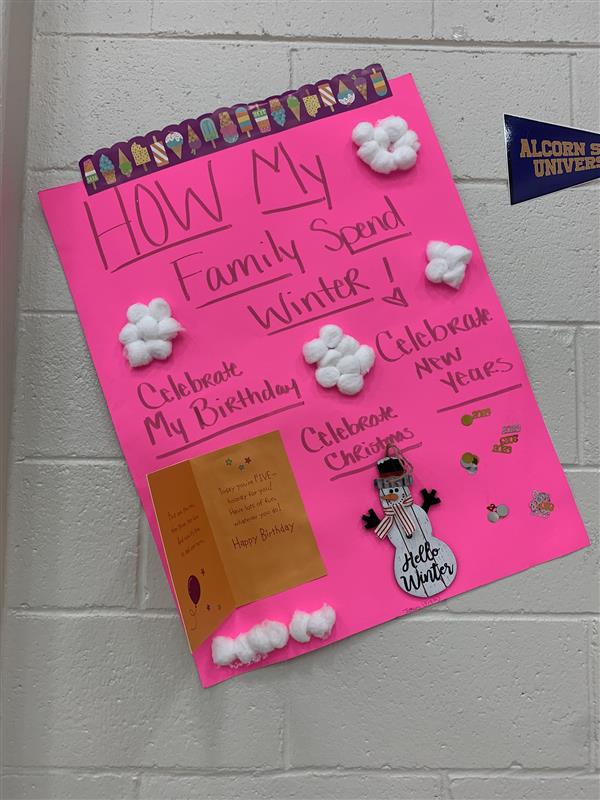 How My
Family Spend
Winter!
ALCORN S
UNIVERS
Celebrate
My Birthday
Celebrate
Christmas
Celebrate
New
Years
Today you're FIVE—
hooray for you!
Have lots of fun,
whatever you do!
Happy Birthday
Hello
Winter